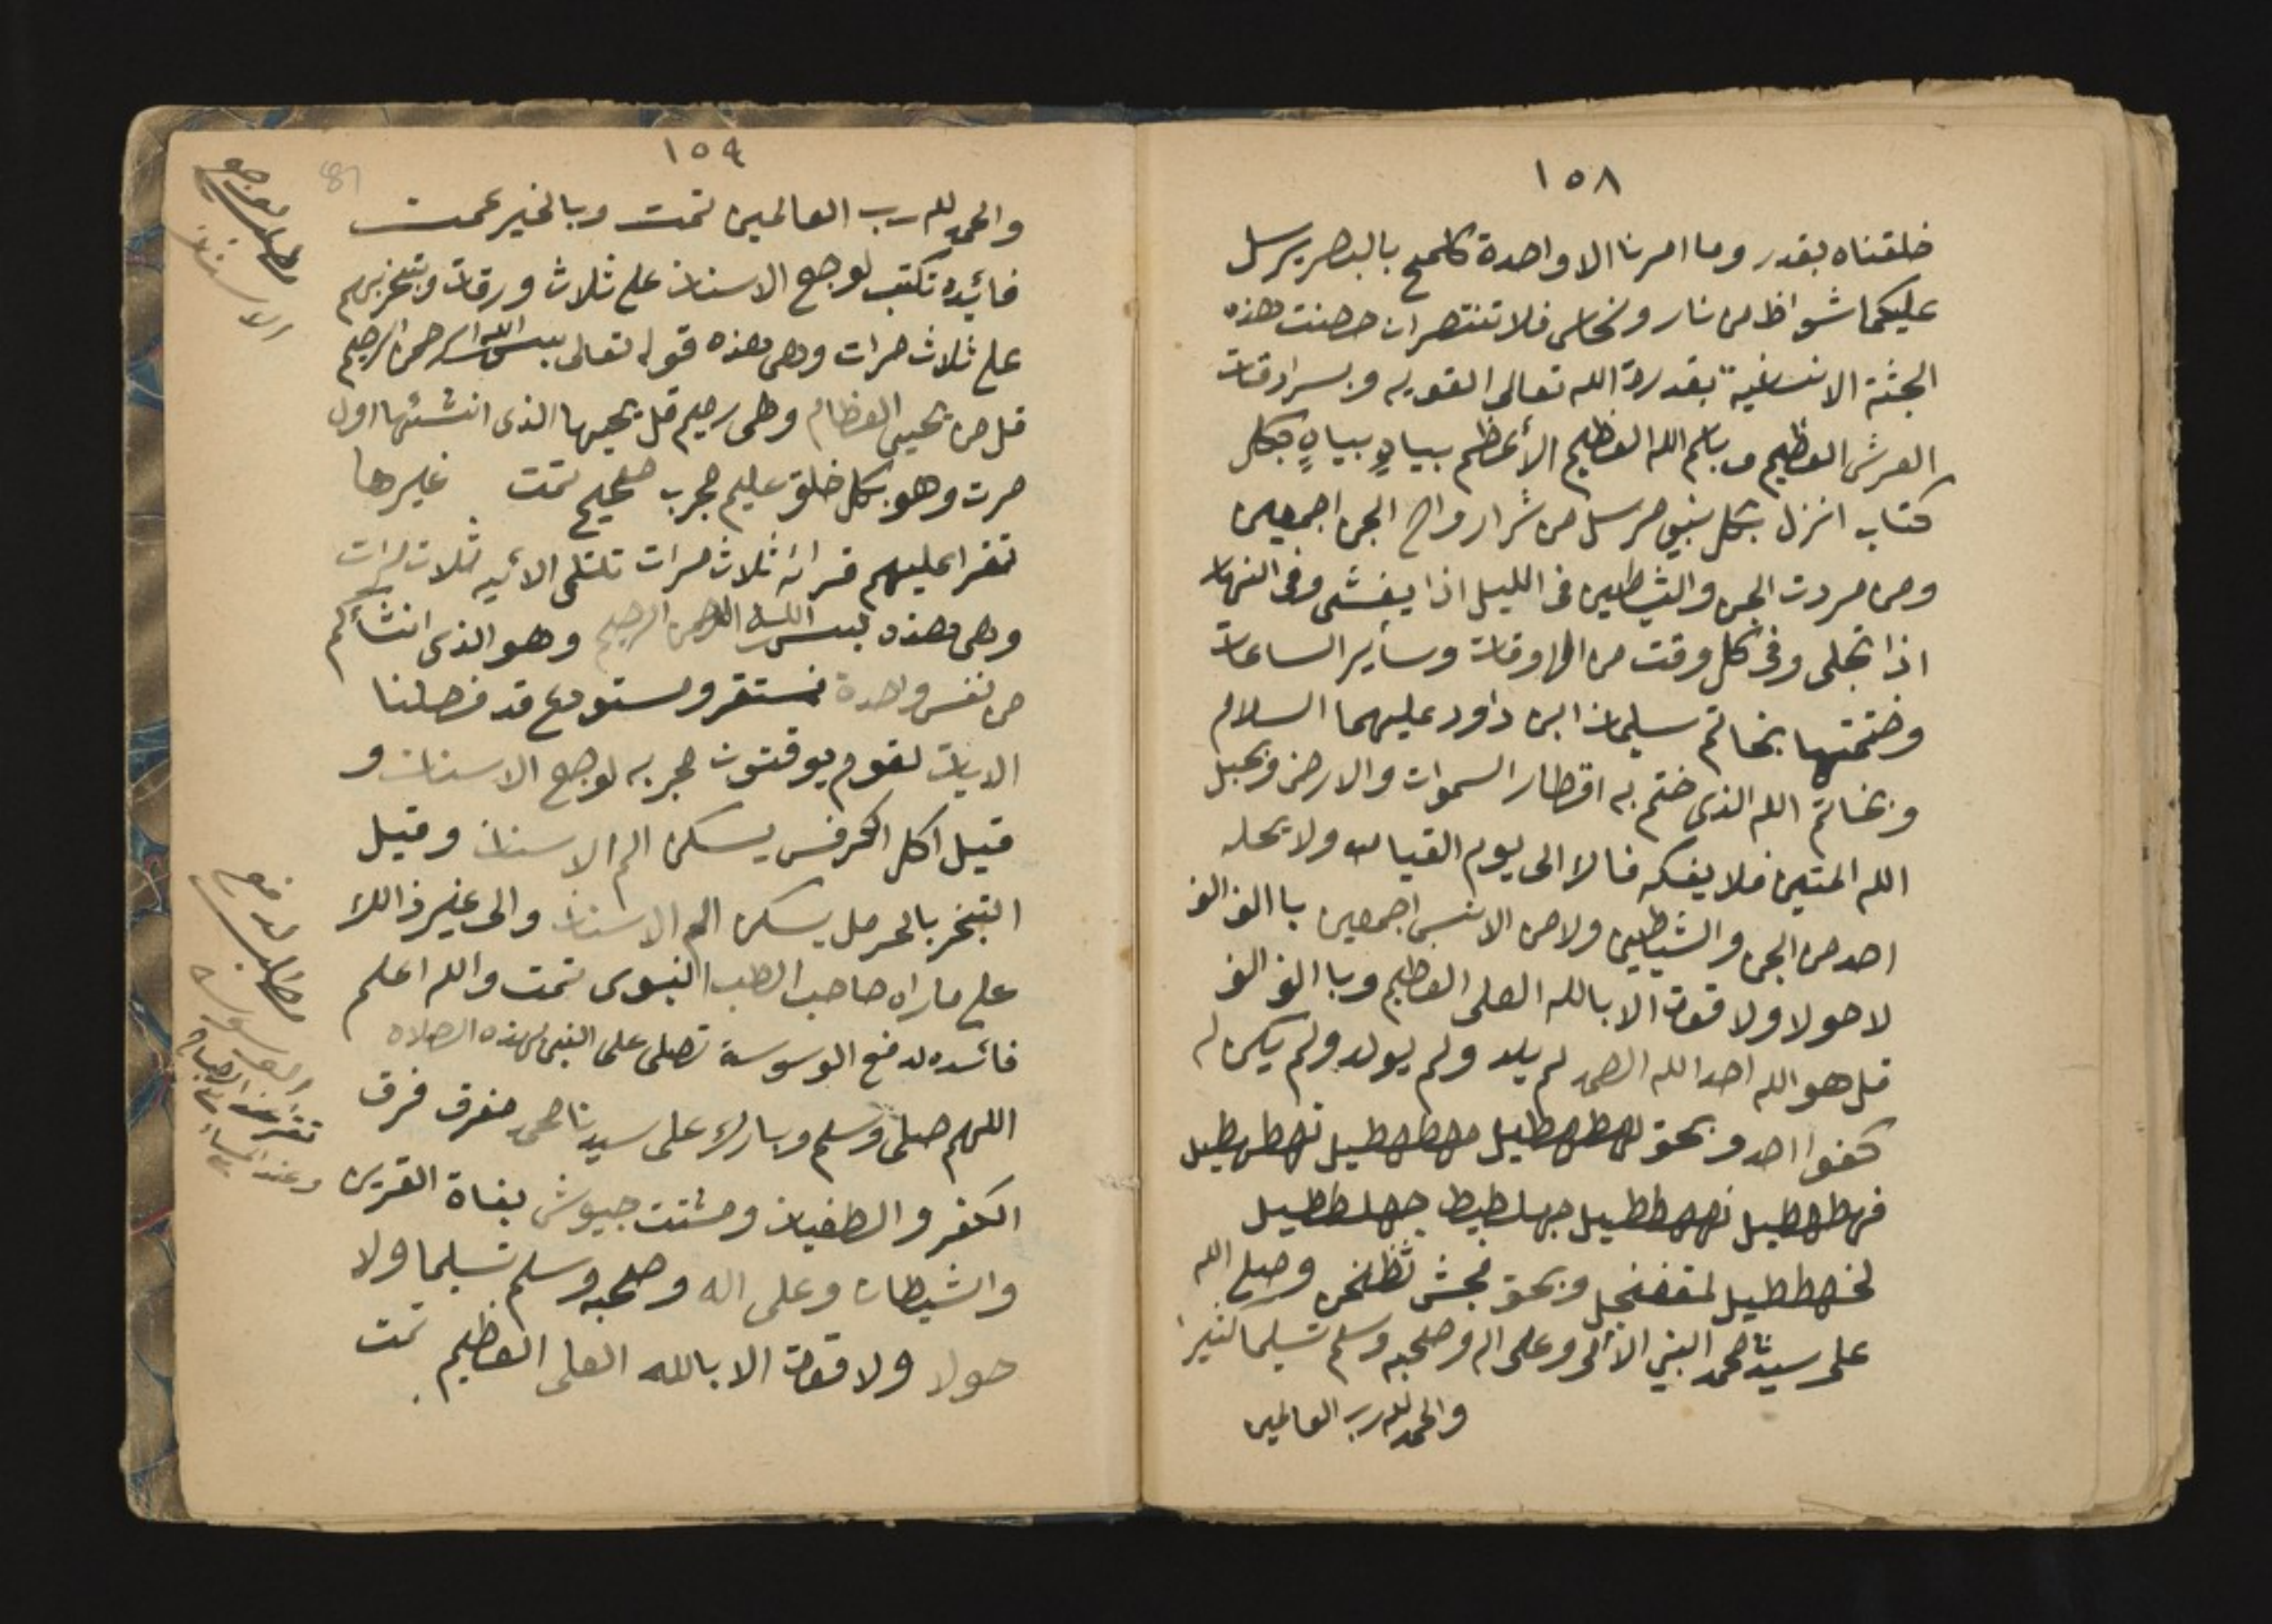 ١٥٨
خلقناه بقدر وما امرنا الا واحدة كلمح بالبصر يرسل
عليكما شواظ من نار ونحاس فلا تنتصران حصنت هذه
الجثة الانسانية بقدرة الله تعالى القويه وبسرادقات
العرش العظيم وباسم الله العظيم الأعظم بيباهٍ بيباهٍ بكل
كتاب انزل بكل نبي مرسل من شر ارواح الجن اجمعين
ومن مردت الجن والشياطين فى الليل اذا يغشى وفى النهار
اذا تجلى وفى كل وقت من الاوقات وسأير الساعات
وختمتها بخاتم سليمان ابن داود عليهما السلام
وبخاتم الله الذى ختم به اقطار السموات والارض وبحبل
الله المتين فلا يفكه فالا الى يوم القيامه ولا يحله
احد من الجن والشياطين ولا من الانس اجمعين باالف الف
لا حولا ولا قوت الا بالله العلى العظيم وباالف الف
قل هو الله احد الله الصمد لم يلد ولم يولد ولم يكن له
كفوا احد وبحق لهطهطيل مهطهطيل نهطهطيل
فهطهطيل نهههططيل جهلططيل جهلططيل
لخهططيل لمقفنجل وبحق فجش ثظخز وصلى الله
على سيدنا محمد النبي الأمى وعلى اله وصحبه وسلم تسليما كثيرا
والحمد لله رب العالمين
١٥٩
81
والحمد لله رب العالمين تمت وبالخير عمت
فائيده تكتب لوجع الاسنان على ثلاث ورقات وتبخر بهم
على ثلاث مرات وهى هذه قوله تعالى بسم الله الرحمن الرحيم
قل من يحيى العظام وهى رميم قل يحيها الذى انشئها اول
مرت وهو بكل خلق عليم مجرب صحيح تمت غيرها
تقرا عليهم قرائه ثلاث مرات تلتلى الأيه ثلاث مرات
وهى هذه بسم الله الرحمن الرحيم وهو الذى انشأكم
من نفس واحدة فمستقر ومستودع قد فصلنا
الايات لقوم يوقنون مجربه لوجع الاسنان و
قيل اكل الكرفس يسكن الم الاسنان وقيل
التبخر بالحرمل يسكن الم الاسنان والى غير ذالك
على ما راه صاحب الطب النبوى تمت والله اعلم
فائده لدفع الوسوسة تصلى على النبى بهذه الصلاه
اللهم صلى وسلم وبارك على سيدنا محمد مفرق فرق
الكفر والطغيان ومشتت جيوش بغاة القرين
والشيطان وعلى اله وصحبه وسلم تسليما ولا
حولا ولا قوت الا بالله العلى العظيم تمت
مطلب لوجع
الاسنان
مطلب لدفع
الوسوسه
تقرا عند الصباح
وعند المساء